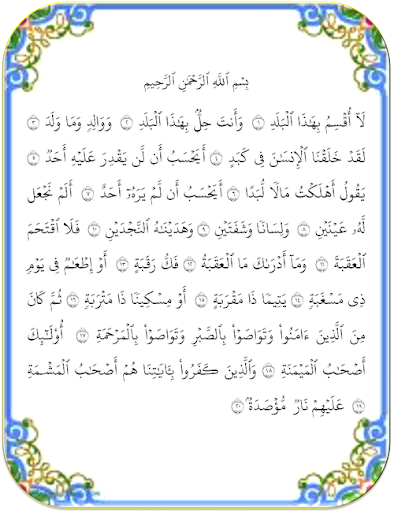 بِسْمِ ٱللَّهِ ٱلرَّحْمَٰنِ ٱلرَّحِيمِ
لَآ أُقْسِمُ بِهَٰذَا ٱلْبَلَدِ ١ وَأَنتَ حِلٌّۢ بِهَٰذَا ٱلْبَلَدِ ٢ وَوَالِدٍ وَمَا وَلَدَ ٣
لَقَدْ خَلَقْنَا ٱلْإِنسَٰنَ فِى كَبَدٍ ٤ أَيَحْسَبُ أَن لَّن يَقْدِرَ عَلَيْهِ أَحَدٌ ٥
يَقُولُ أَهْلَكْتُ مَالًا لُّبَدًا ٦ أَيَحْسَبُ أَن لَّمْ يَرَهُۥٓ أَحَدٌ ٧ أَلَمْ نَجْعَل
لَّهُۥ عَيْنَيْنِ ٨ وَلِسَانًا وَشَفَتَيْنِ ٩ وَهَدَيْنَٰهُ ٱلنَّجْدَيْنِ ١٠ فَلَا ٱقْتَحَمَ
ٱلْعَقَبَةَ ١١ وَمَآ أَدْرَىٰكَ مَا ٱلْعَقَبَةُ ١٢ فَكُّ رَقَبَةٍ ١٣ أَوْ إِطْعَٰمٌ فِى يَوْمٍ
ذِى مَسْغَبَةٍ ١٤ يَتِيمًا ذَا مَقْرَبَةٍ ١٥ أَوْ مِسْكِينًا ذَا مَتْرَبَةٍ ١٦ ثُمَّ كَانَ
مِنَ ٱلَّذِينَ ءَامَنُوا۟ وَتَوَاصَوْا۟ بِٱلصَّبْرِ وَتَوَاصَوْا۟ بِٱلْمَرْحَمَةِ ١٧ أُو۟لَٰٓئِكَ
أَصْحَٰبُ ٱلْمَيْمَنَةِ ١٨ وَٱلَّذِينَ كَفَرُوا۟ بِـَٔايَٰتِنَا هُمْ أَصْحَٰبُ ٱلْمَشْـَٔمَةِ
١٩ عَلَيْهِمْ نَارٌ مُّؤْصَدَةٌۢ ٢٠